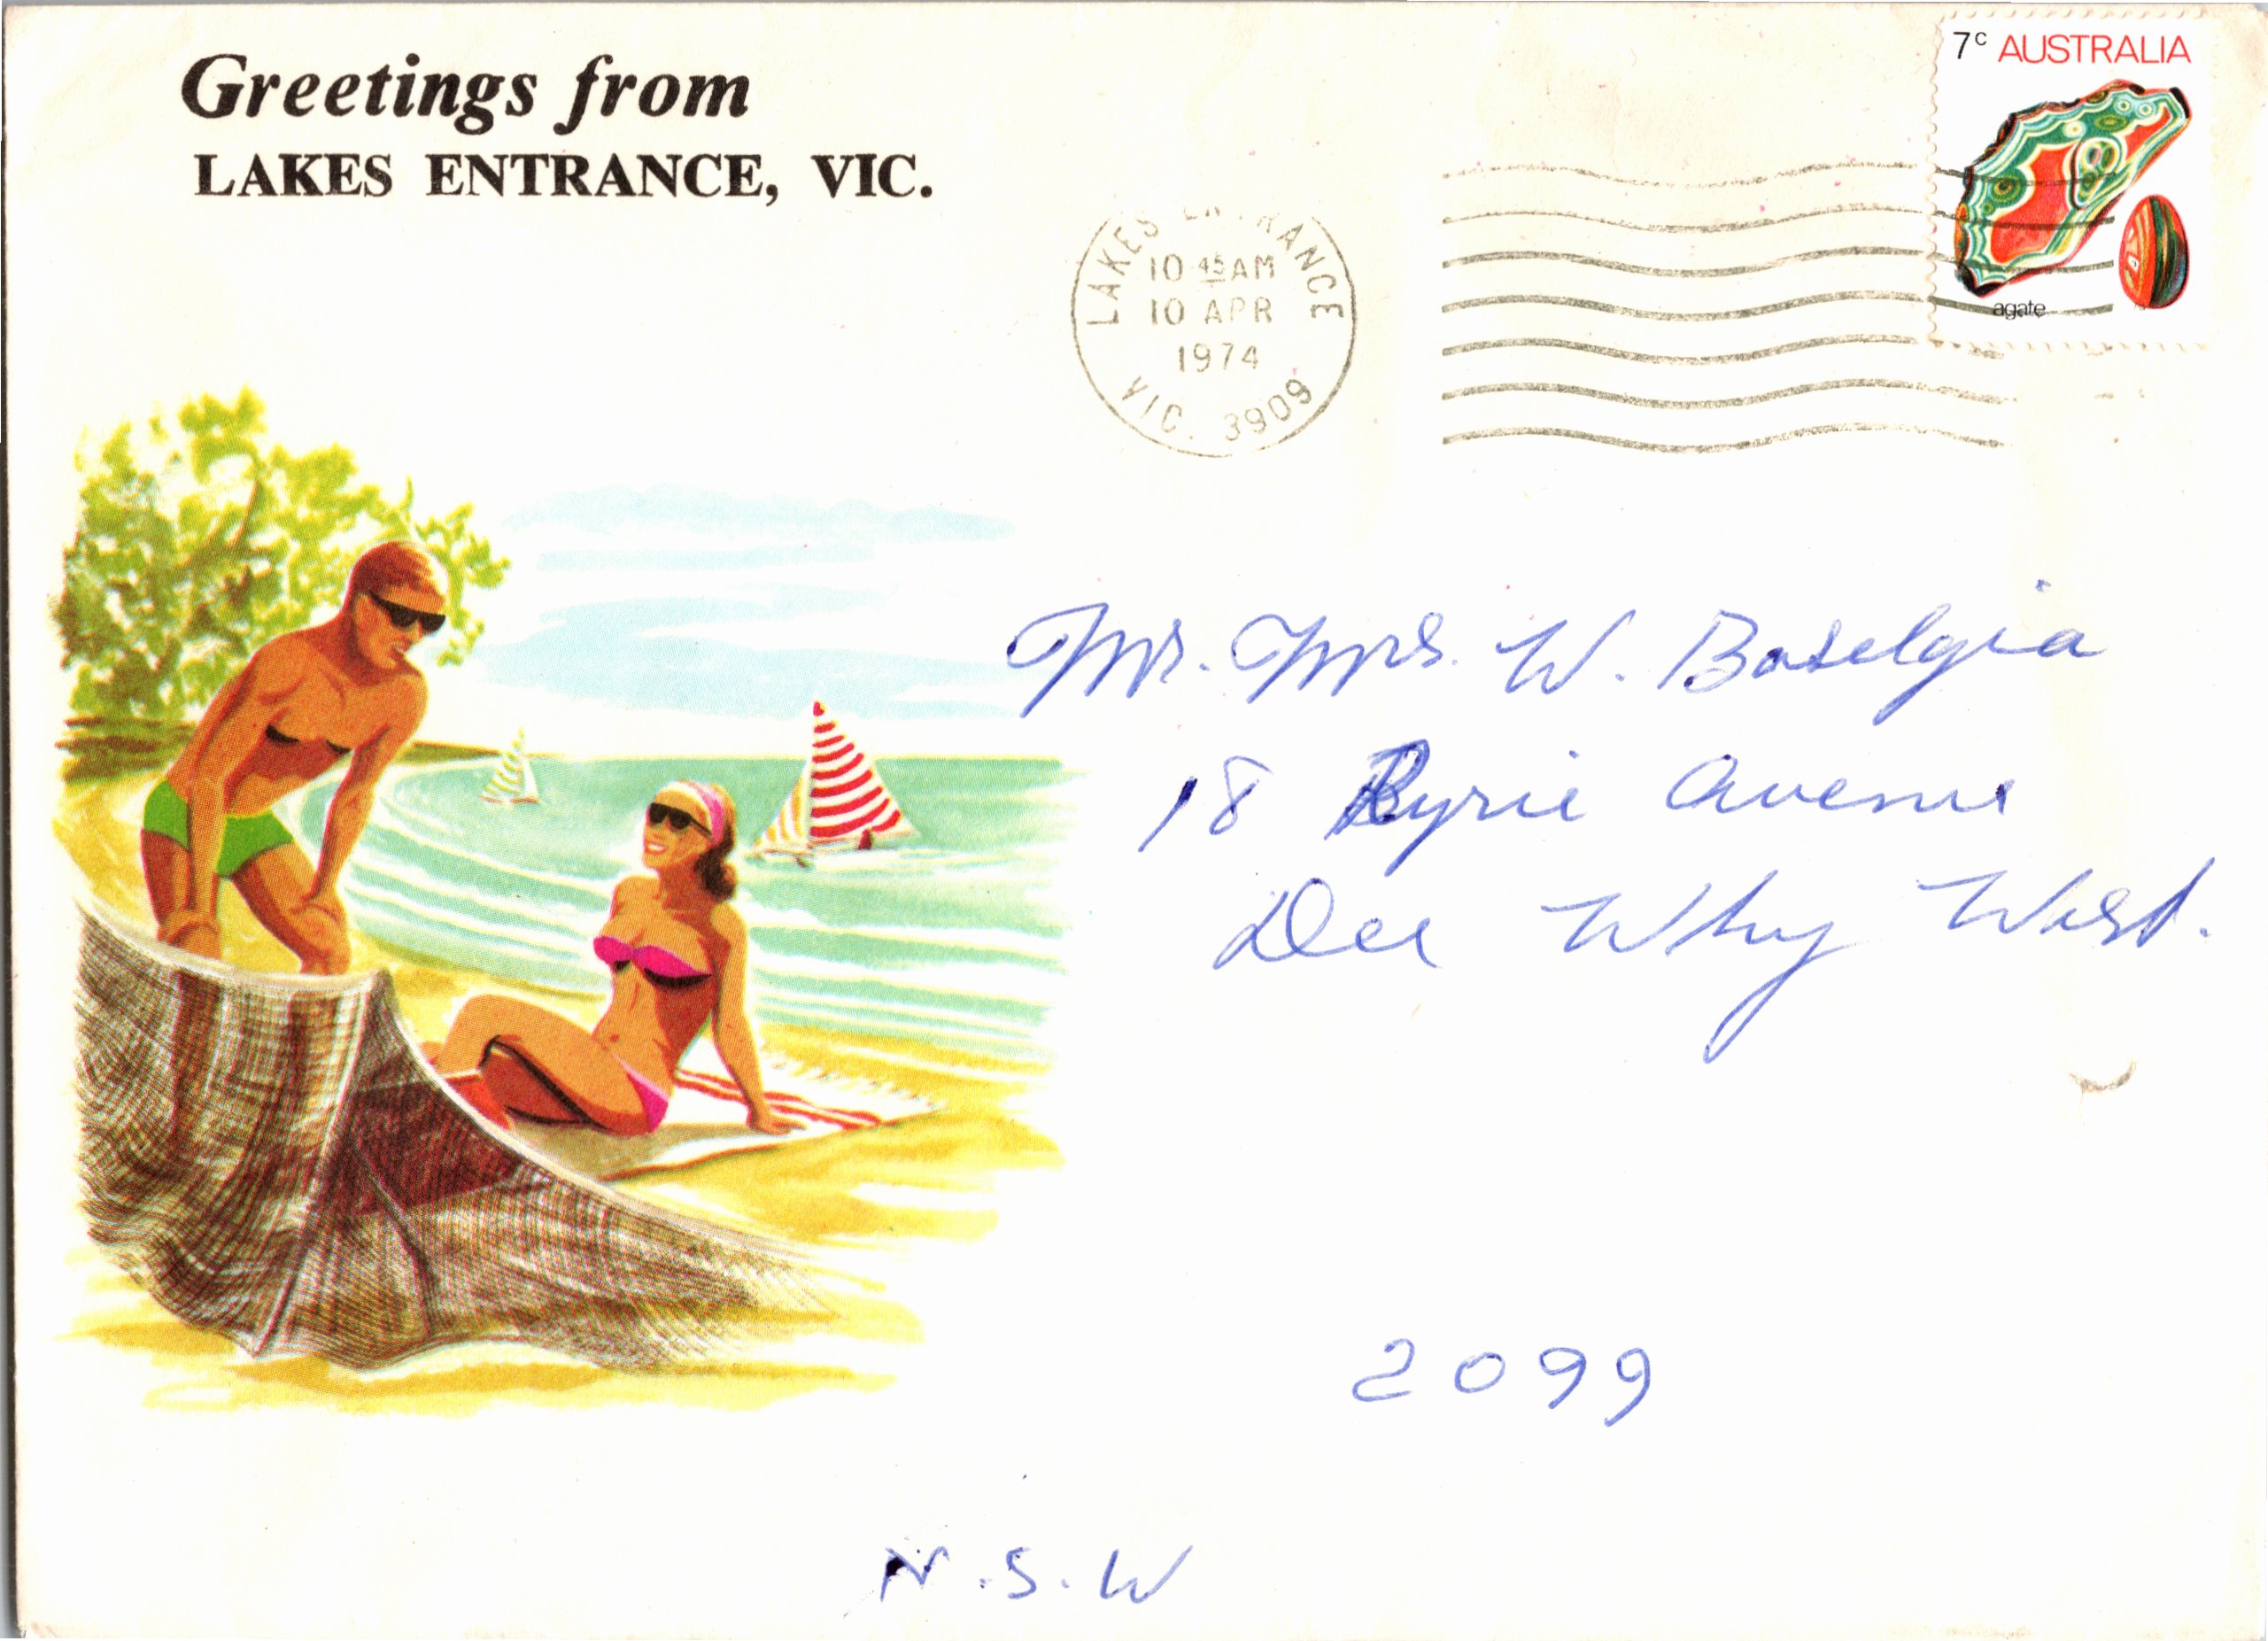 Greetings from
LAKES ENTRANCE, VIC.
7c AUSTRALIA
agate
LAKES ENTRANCE
10 45 AM
10 APR
1974
VIC. 3909
Mr. Mrs. W. Baselgia
18 Ryrie Avenue
Dee Why West.
2099
N.S.W